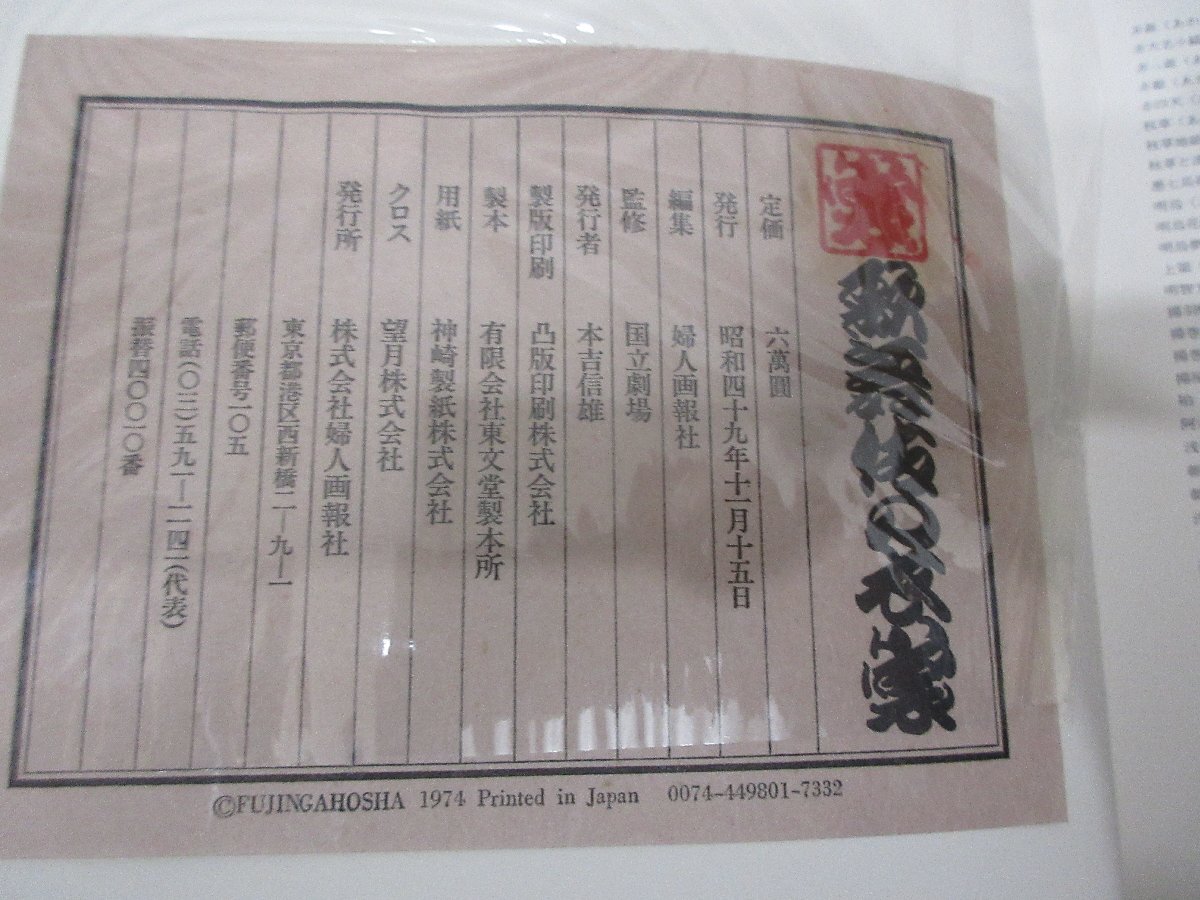 歌舞伎の衣裳
定価 六萬圓
発行 昭和四十九年十一月十五日
編集 婦人画報社
監修 国立劇場
発行者 本吉信雄
製版印刷 凸版印刷株式会社
製本 有限会社東文堂製本所
用紙 神崎製紙株式会社
クロス 望月株式会社
発行所 株式会社婦人画報社
東京都港区西新橋二ー九ー一
郵便番号一〇五
電話(〇三)五九一ー二一四一(代表)
振替四〇〇一〇番
©FUJINGAHOSHA 1974 Printed in Japan 0074-449801-7332